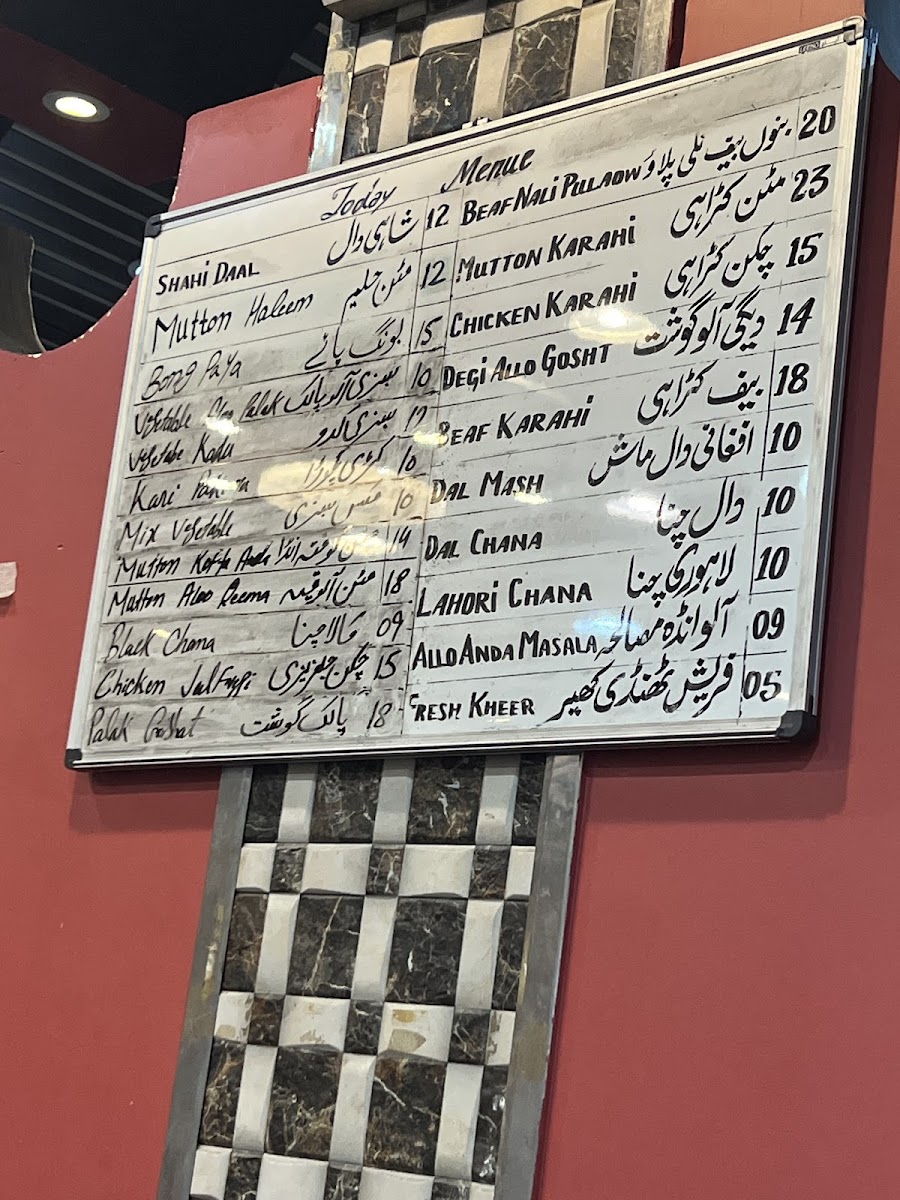 Today Menue
SHAHI DAAL شاہی دال 12
Mutton Haleem مٹن حلیم 12
Bong Paya بونگ پائے 15
Vegetable Aloo Palak سبزی آلو پالک 10
Vegetabe Kadu سبزی کدو 12
Kari Pakora کڑی پکوڑا 10
Mix Vegetable مکس سبزی 10
Mutton Kofta Anda مٹن کوفتہ انڈا 14
Mutton Aloo Qeema مٹن آلو قیمہ 18
Black Chana کالا چنا 09
Chicken Jalfrezi چکن جلفریزی 15
Palak Goshat پالک گوشت 18
BEAF NALI PULAOW بنوں بیف نلی پلاؤ 20
MUTTON KARAHI مٹن کڑاہی 23
CHICKEN KARAHI چکن کڑاہی 15
DEGI ALLO GOSHT دیگی آلو گوشت 14
BEAF KARAHI بیف کڑاہی 18
DAL MASH افغانی دال ماش 10
DAL CHANA دال چنا 10
LAHORI CHANA لاہوری چنا 10
ALLO ANDA MASALA آلو انڈہ مصالحہ 09
FRESH KHEER فریش ٹھنڈی کھیر 05